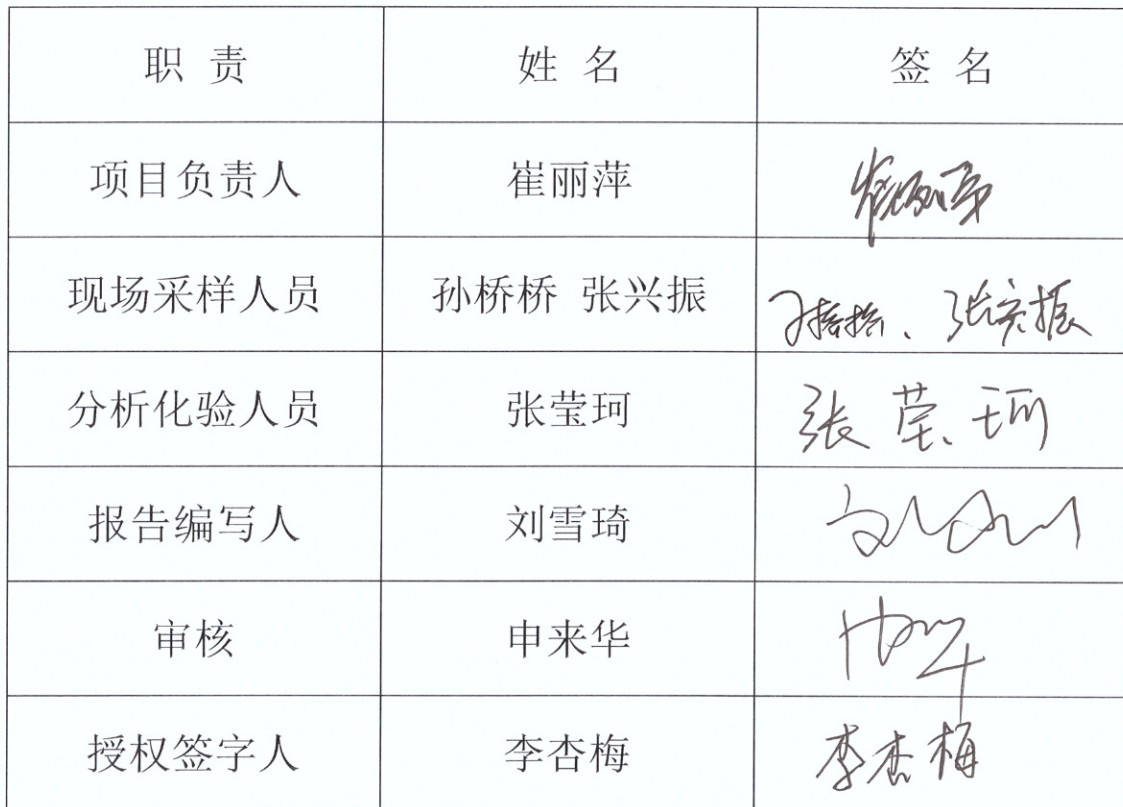 职 责 姓 名 签 名
项目负责人 崔丽萍 崔丽萍
现场采样人员 孙桥桥 张兴振 孙桥桥、张兴振
分析化验人员 张莹珂 张莹珂
报告编写人 刘雪琦
审核 申来华
授权签字人 李杏梅 李杏梅